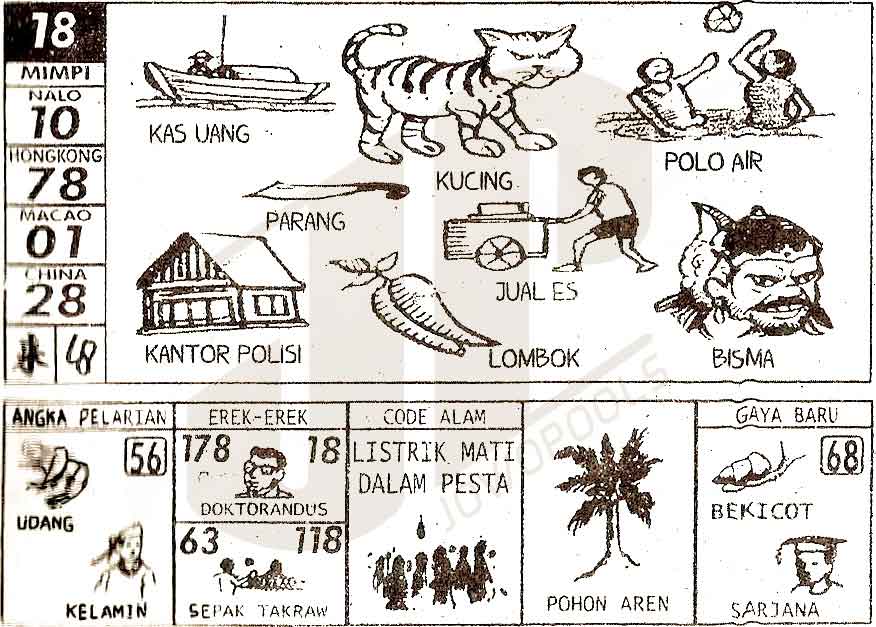 18
MIMPI
NALO
10
HONGKONG
78
MACAO
01
CHINA
28
48
KAS UANG
KUCING
POLO AIR
PARANG
JUAL ES
KANTOR POLISI
LOMBOK
BISMA
ANGKA PELARIAN
56
UDANG
KELAMIN
EREK-EREK
178 18
DOKTORANDUS
63 118
SEPAK TAKRAW
CODE ALAM
LISTRIK MATI
DALAM PESTA
POHON AREN
GAYA BARU
68
BEKICOT
SARJANA
JOWOPOOLS